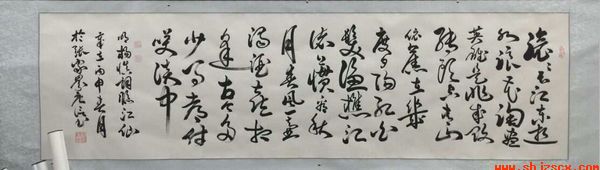 滚滚长江东逝
水浪花淘尽
英雄是非成败
转头空青山
依舊在几
度夕阳红白
髮渔樵江
渚上惯看秋
月春风一壶
浊酒喜相
逢古今多
少事都付
笑谈中
明杨慎词临江仙
丙申春月
於张家界
www.shjzscx.com